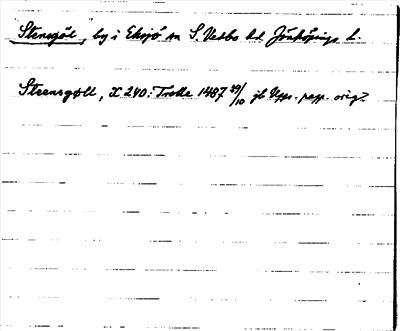 Stensgöl, by i Eksjö sn S. Vedbo hd Jönköpings l.
Steensgöll, X 240: Trolle 1487 29/10 jb Upps. papp. orig?